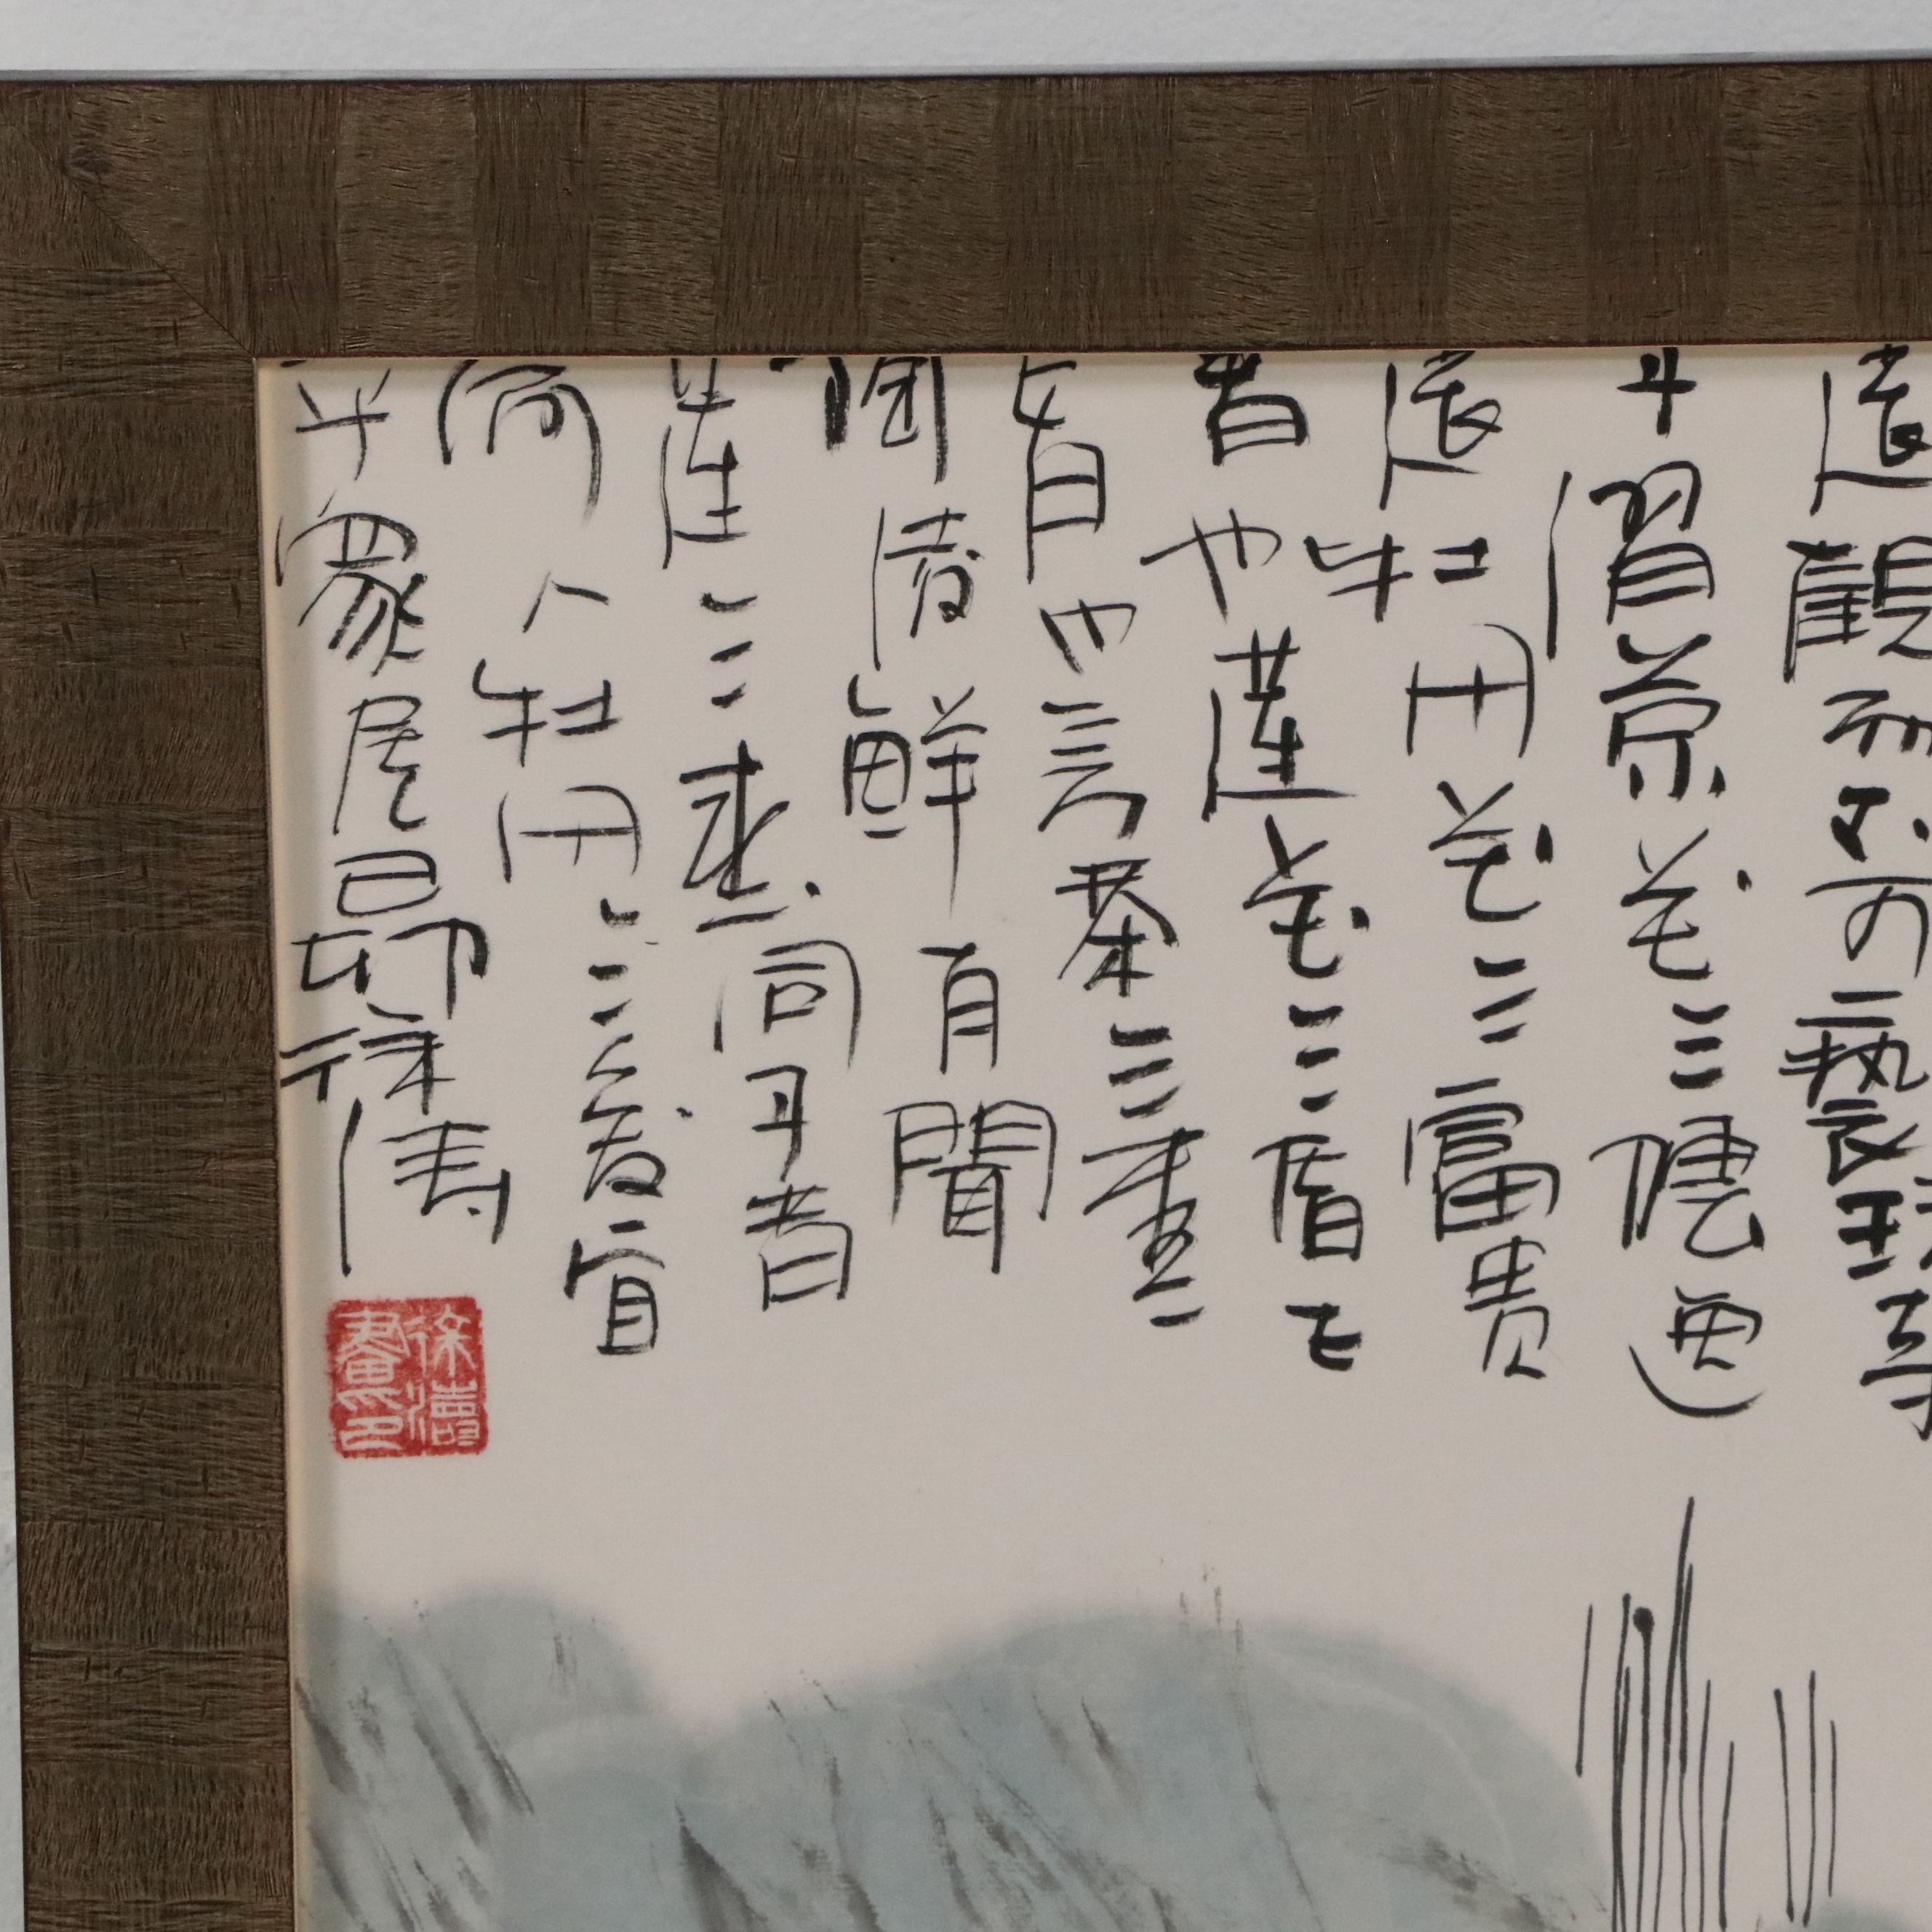 遠觀而不可褻玩
謂菊花之隱逸
牡丹花之富貴
者也蓮花之君子
者也言菊之愛
陶後鮮有聞
蓮之愛同予者
何人牡丹之愛宜
乎眾 己卯徐濤
徐濤畫印